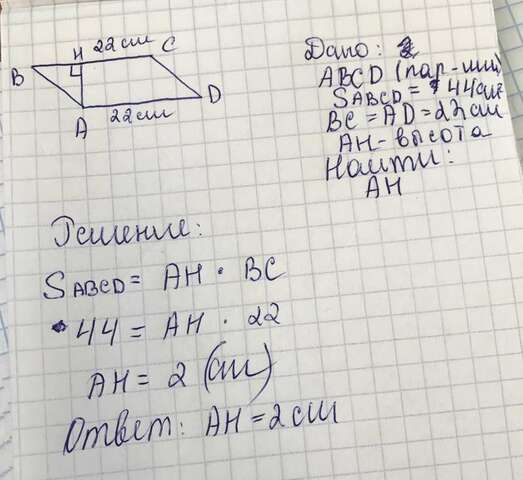 H 22 см C
B
A 22 см D
Дано:
ABCD (пар-мм)
SABCD = 44 см²
BC = AD = 22 см
AH - высота
Найти:
AH
Решение:
SABCD = AH · BC
44 = AH · 22
AH = 2 (см)
Ответ: AH = 2 см